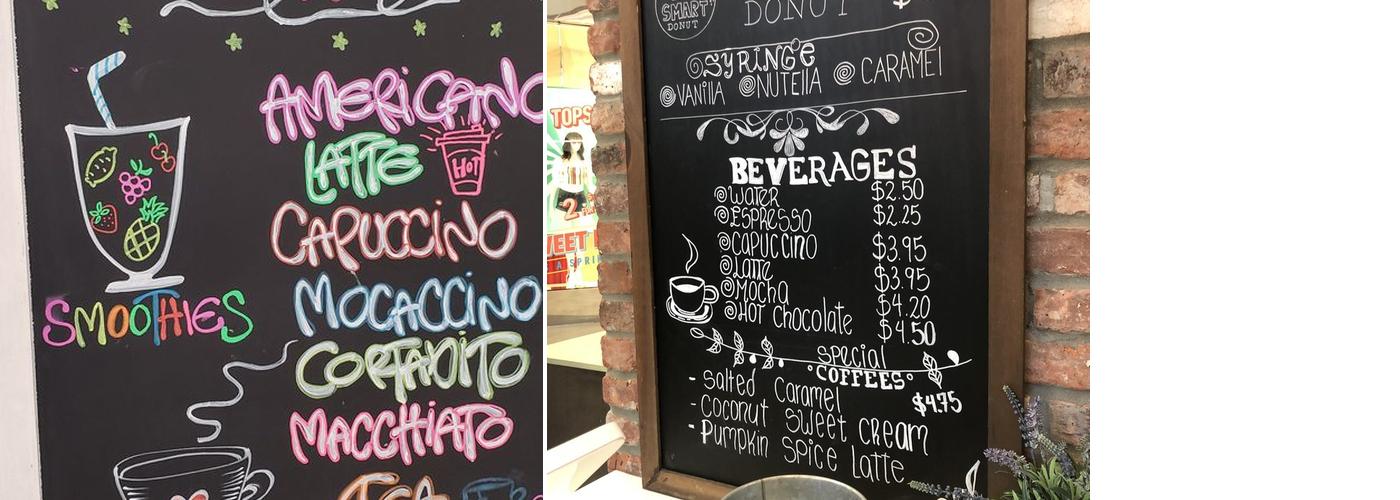 AMERICANO
LATTE
HOT
CAPUCCINO
MOCACCINO
SMOOTHIES
CORTADITO
MACCHIATO
TEA
SMART
DONUT
DONUT $
SYRINGE
VANILLA NUTELLA CARAMEL
TOPS
2
BEVERAGES
WATER $2.50
ESPRESSO $2.25
CAPUCCINO $3.95
Latte $3.95
Mocha $4.20
HOT chocolate $4.50
special
COFFEES
- Salted Caramel $4.75
- Coconut Sweet CReam
- Pumpkin Spice Latte